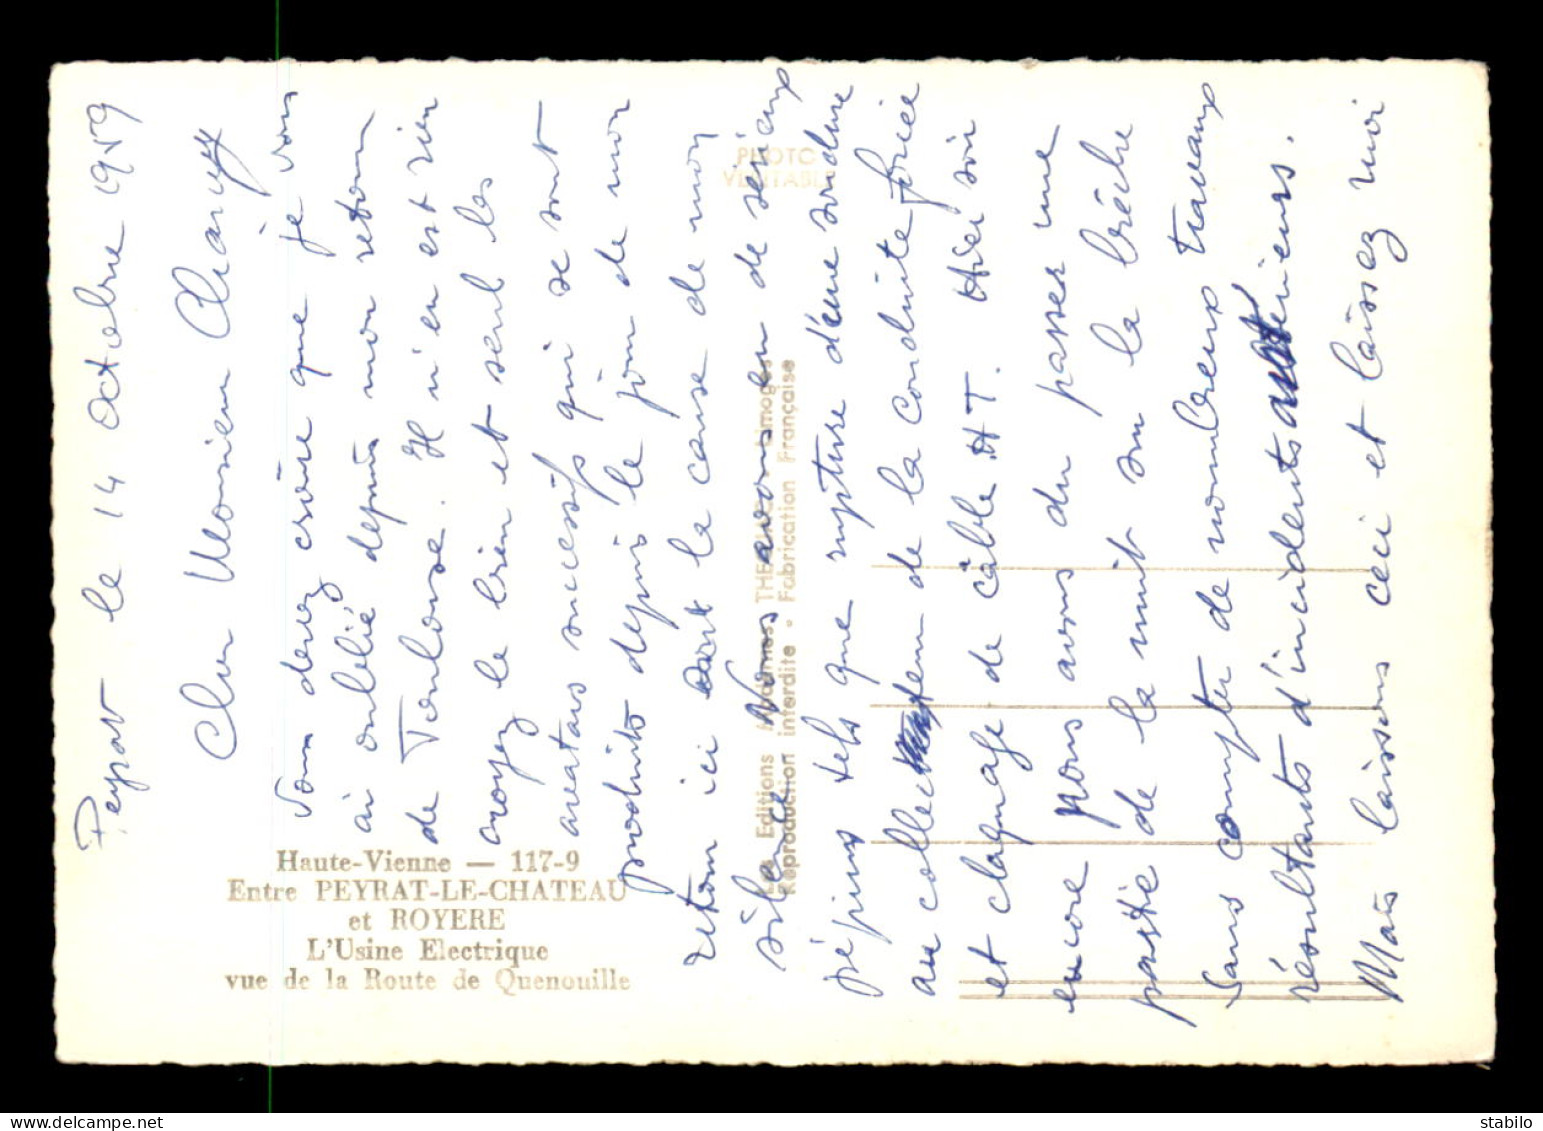 Peyrat le 14 octobre 1959
Cher Monsieur
Vous devez croire que je vous
ai oublié depuis mon retour
de Toulouse. Il n'en est rien
croyez le bien et seul les
avatars successifs qui se sont
produits depuis le jour de mon
retour ici sont la cause de mon
silence. Nous avons eu de sérieux
pépins tels que rupture d'une soudure
au collecteur de la conduite forcée
et claquage de câble HT. Hier soir
encore nous avons du passer une
partie de la nuit sur la brèche
sans compter de nombreux travaux
résultants d'incidents antérieurs.
Mais laissons ceci et laissez moi
Haute-Vienne — 117-9
Entre PEYRAT-LE-CHATEAU
et ROYERE
L'Usine Electrique
vue de la Route de Quenouille
PHOTO
VERITABLE
Les Editions Limoges
Reproduction interdite - Fabrication Française
delcampe.net
stabilo